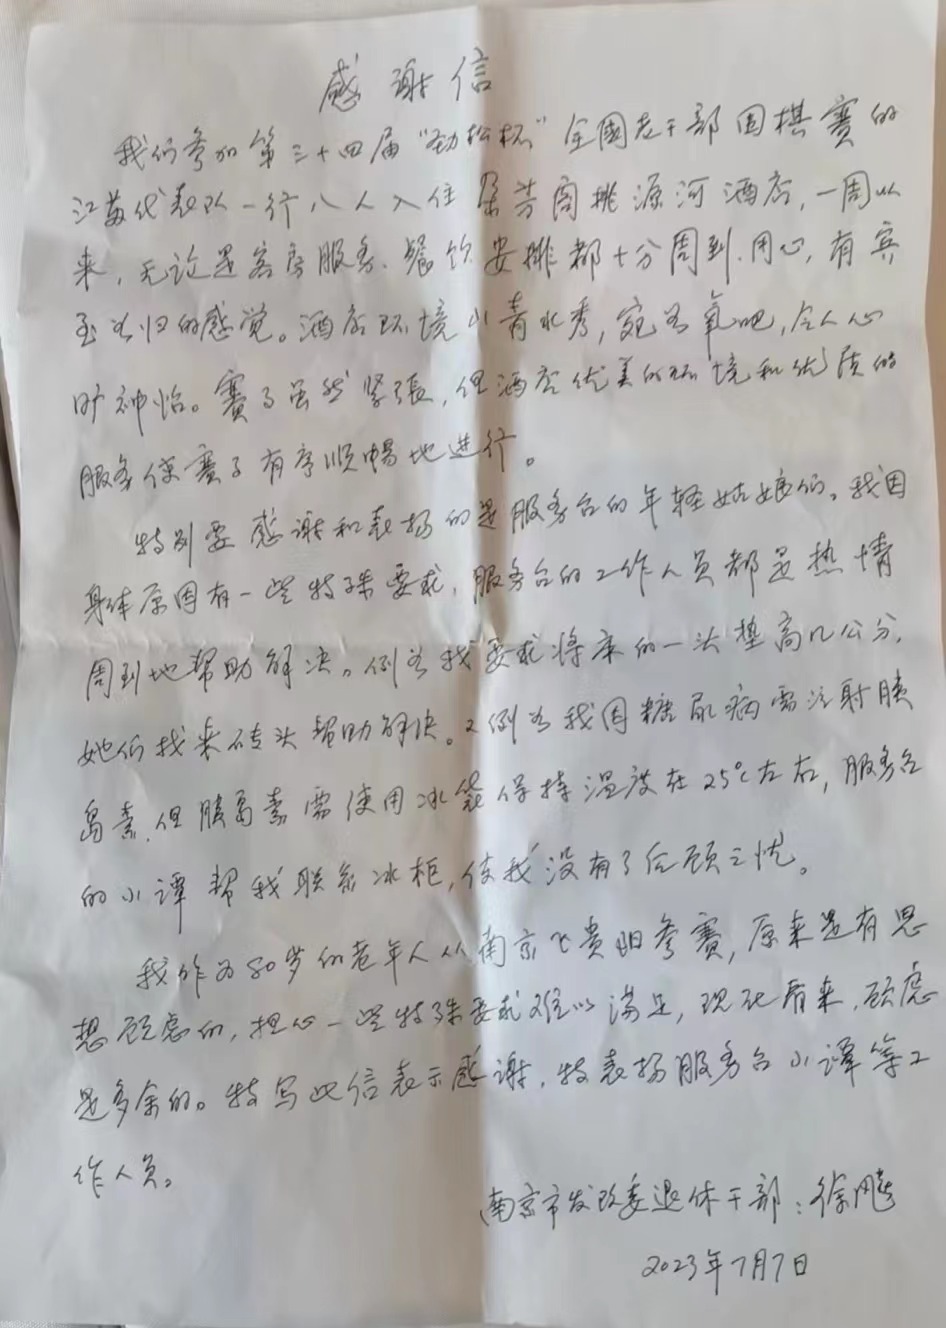 感谢信
我们参加第三十四届“劲松杯”全國老干部围棋赛的
江苏代表队一行八人入住群芳阁桃源河酒店,一周以
来,无论是客房服务、餐饮安排都十分周到.用心,有宾
至如归的感觉。酒店环境山青水秀,宛如氧吧,令人心
旷神怡。赛事虽然紧張,但酒店优美的环境和优质的
服务使赛事有序顺畅地进行。
特别要感谢和表扬的是服务台的年轻姑娘们。我因
身体原因有一些特殊要求,服务台的工作人员都是热情
周到地帮助解决。例如我要求将床的一头垫高几公分,
她们找来砖头帮助解决。又例如我因糖尿病需注射胰
岛素,但胰岛素需使用冰袋保持温度在25℃左右,服务台
的小谭帮我联系冰柜,使我没有了后顾之忧。
我作为80岁的老年人从南京飞贵阳参赛,原来是有思
想顾虑的,担心一些特殊要求难以满足,现在看来,顾虑
是多余的。特写此信表示感谢,特表扬服务台小谭等工
作人员。
南京市发改委退休干部:徐
2023年7月7日